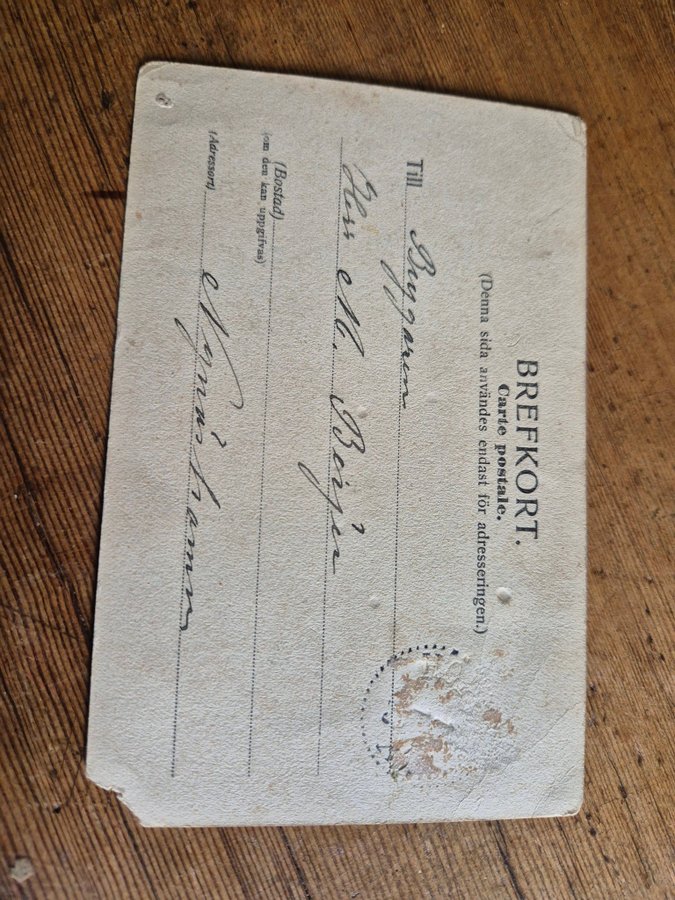 BREFKORT.
Carte postale.
(Denna sida användes endast för adresseringen.)
Till Byggaren
Herr M. Börjes
(Bostad)
(om den kan uppgifvas)
(Adressort) Nynäshamn